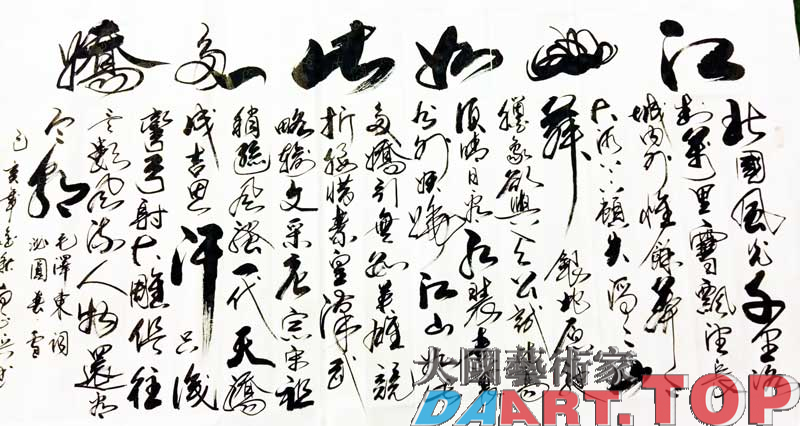 江山如此多嬌
北國風光千里冰
封萬里雪飄望長
城內外惟餘莽莽
大河上下頓失滔滔山
舞銀蛇原馳
蠟象欲與天公試比高
須晴日看紅裝素裹
分外妖嬈江山如此
多嬌引無數英雄競
折腰惜秦皇漢武
略輸文采唐宗宋祖
稍遜風騷一代天驕
成吉思汗只識
彎弓射大雕俱往
矣數風流人物還看
今朝
毛澤東詞
沁園春雪
己亥年
大國藝術家
DAART.TOP